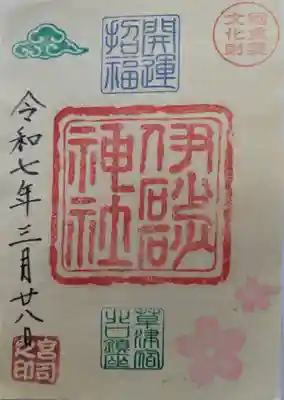 国重要
文化財
開運
招福
伊砂砂
神社
草津宿
北口鎮座
令和七年三月廿八日
宮司
之印